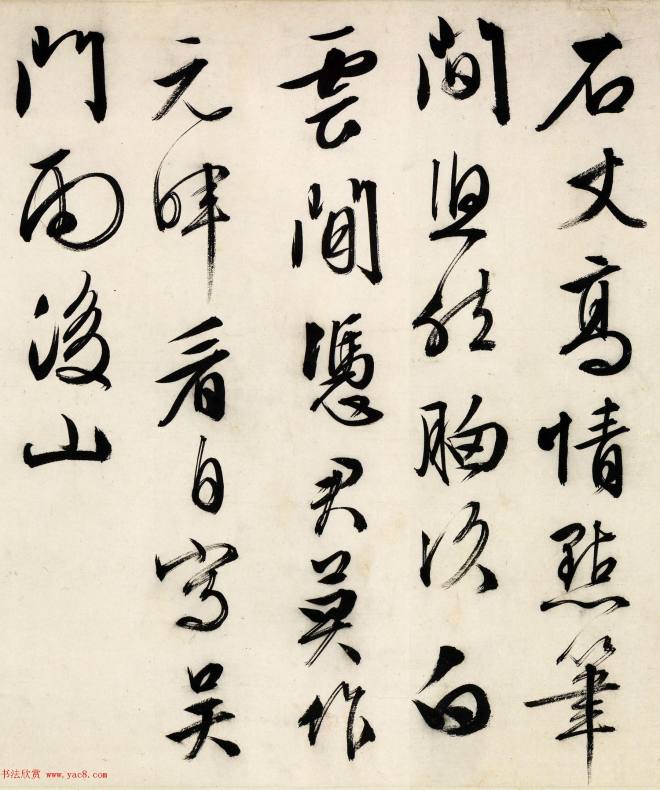 石丈高情點筆
間思從胸次白
雲間憑君莫作
元暉看自寫吳
門雨後山
书法欣赏 www.yac8.com